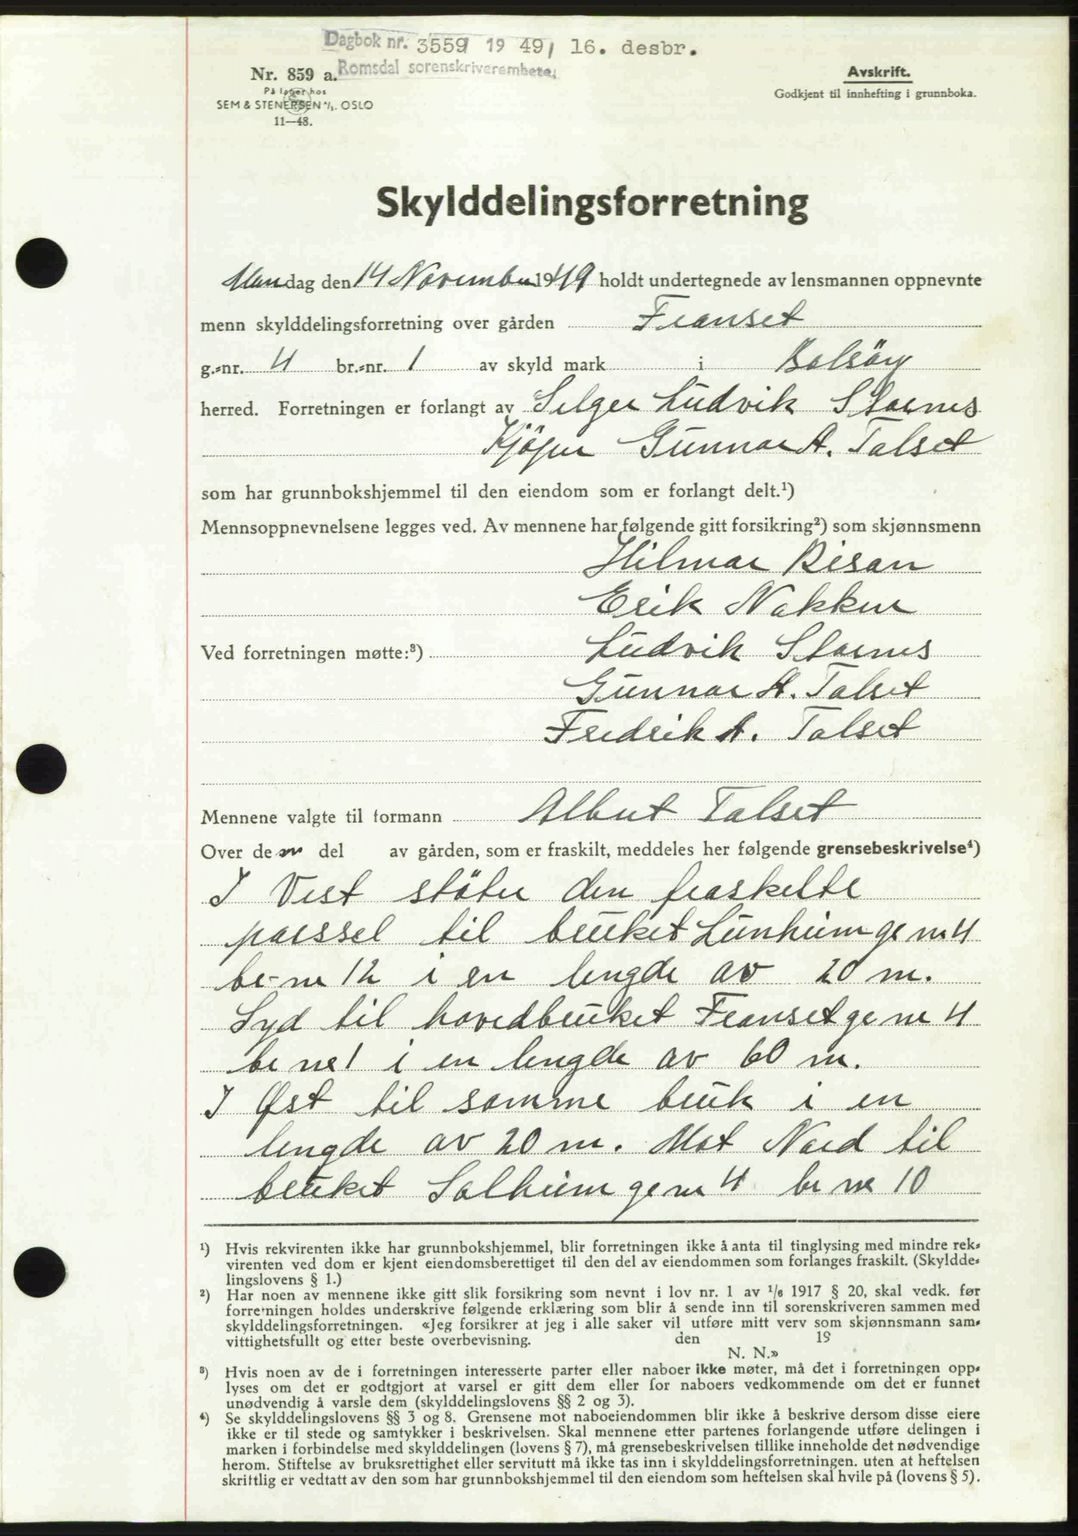 Dagbok nr. 3559 1949, 16. desbr.
Romsdal sorenskriverembete.
Nr. 859 a.
På lager hos
SEM & STENERSEN A/S. OSLO
11—48.
Avskrift.
Godkjent til innhefting i grunnboka.
Skylddelingsforretning
Mandag den 14 November 1949 holdt undertegnede av lensmannen oppnevnte
menn skylddelingsforretning over gården Franset
g.-nr. 4 br.-nr. 1 av skyld mark i Bolsöy
herred. Forretningen er forlangt av Selger Ludvik Starnes
Kjöper Gunnar A. Talset
som har grunnbokshjemmel til den eiendom som er forlangt delt.¹)
Mennsoppnevnelsene legges ved. Av mennene har følgende gitt forsikring²) som skjønnsmenn
Hilmar Risan
Erik Nakken
Ved forretningen møtte:³) Ludvik Starnes
Gunnar A. Talset
Fredrik A. Talset
Mennene valgte til formann Albert Talset
Over den del av gården, som er fraskilt, meddeles her følgende grensebeskrivelse⁴)
I Vest stöter den fraskelte
parssel til bruket Lunheim gr nr 4
br-nr 12 i en lengde av 20 m.
Syd til hovedbruket Franset gr nr 4
br nr 1 i en lengde av 60 m.
I Øst til samme bruk i en
lengde av 20 m. Mot Nord til
bruket Solheim gr nr 4 br nr 10
¹) Hvis rekvirenten ikke har grunnbokshjemmel, blir forretningen ikke å anta til tinglysing med mindre rek-
virenten ved dom er kjent eiendomsberettiget til den del av eiendommen som forlanges fraskilt. (Skyldde-
lingslovens § 1.)
²) Har noen av mennene ikke gitt slik forsikring som nevnt i lov nr. 1 av 1/6 1917 § 20, skal vedk. før
forretningen holdes underskrive følgende erklæring som blir å sende inn til sorenskriveren sammen med
skylddelingsforretningen. «Jeg forsikrer at jeg i alle saker vil utføre mitt verv som skjønnsmann sam-
vittighetsfullt og etter beste overbevisning. den 19
N. N.»
³) Hvis noen av de i forretningen interesserte parter eller naboer ikke møter, må det i forretningen opp-
lyses om det er godtgjort at varsel er gitt dem eller for naboers vedkommende om det er funnet
unødvendig å varsle dem (skylddelingslovens §§ 2 og 3).
⁴) Se skylddelingslovens §§ 3 og 8. Grensene mot naboeiendommen blir ikke å beskrive dersom disse eiere
ikke er til stede og samtykker i beskrivelsen. Skal mennene etter partenes forlangende utføre delingen i
marken i forbindelse med skylddelingen (lovens § 7), må grensebeskrivelsen tillike inneholde det nødvendige
herom. Stiftelse av bruksrettighet eller servitutt må ikke tas inn i skylddelingsforretningen. uten at heftelsen
skriftlig er vedtatt av den som har grunnbokshjemmel til den eiendom som heftelsen skal hvile på (lovens § 5).